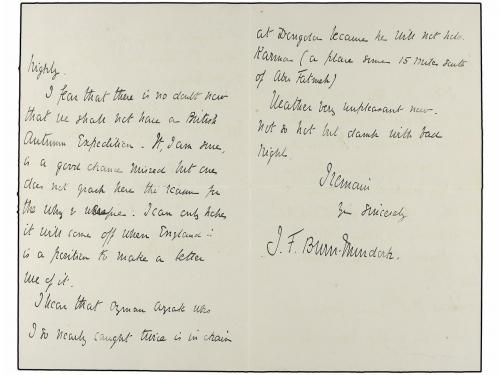 Highly.
I fear that there is no doubt now
that we shall not have a British
Autumn Expedition. It, I am sure,
is a good chance missed but one
does not grasp here the reason for
the why & wherefore. I can only hope
it will come off when England is
in a position to make a better
use of it.
I hear that Osman Azrak who
I so nearly caught twice is in chains
at Dongola because he will not hold
Karma (a place some 15 miles south
of Abu Fatmeh)
Weather very unpleasant now.
Not so hot but damp with bad
night.
I remain
Yrs Sincerely
J. F. Burn-Murdoch.